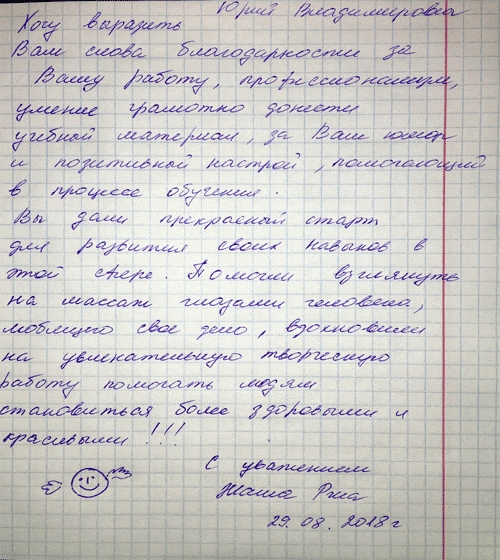 Юрий Владимирович
Хочу выразить
Вам слова благодарности за
Вашу работу, профессионализм,
умение грамотно донести
учебный материал, за Ваш юмор
и позитивный настрой, помогающий
в процессе обучения.
Вы дали прекрасный старт
для развития своих навыков в
этой сфере. Помогли взглянуть
на массаж глазами человека,
любящего свое дело, вдохновили
на увлекательную творческую
работу помогать людям
становиться более здоровыми и
красивыми !!!
С уважением
29.08.2018 г